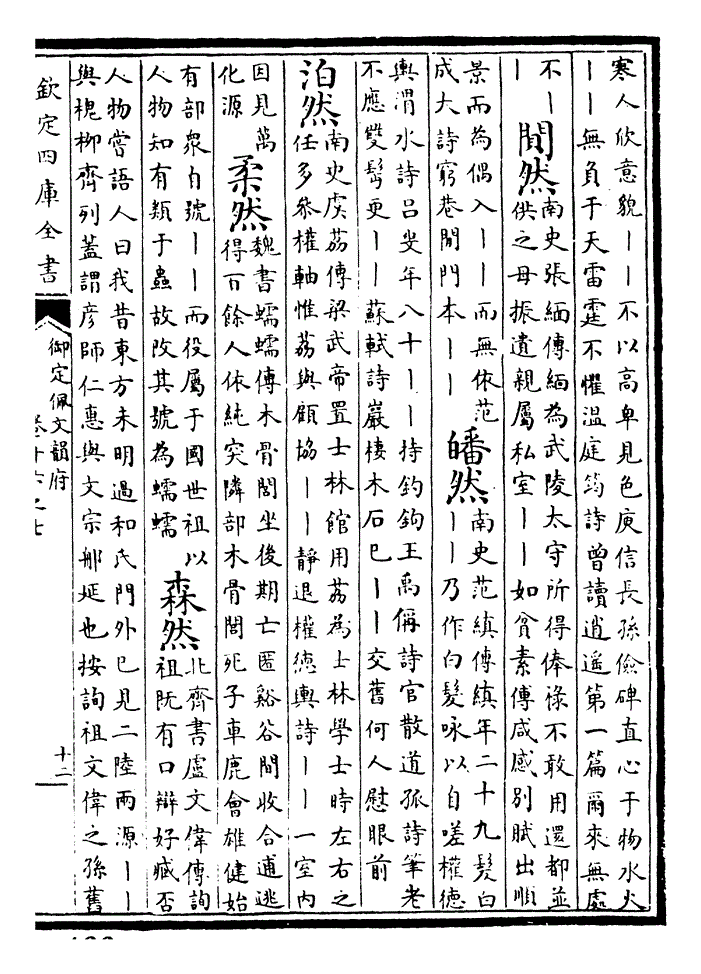 寒人欣意貌丨丨不以高卑見色庾信長孫儉碑直心于物水火
丨丨無負于天雷霆不懼溫庭筠詩曾讀逍遙第一篇爾來無處
不丨
丨
閒然
南史張緬傳緬為武陵太守所得俸祿不敢用還都並
供之母振遺親屬私室丨丨如貧素傅咸感別賦出順
景而為偶入丨丨而無依范
成大詩窮巷閒門本丨丨
皤然
南史范縝傳縝年二十九髮白
丨丨乃作白髮咏以自嗟權德
輿渭水詩呂叟年八十丨丨持釣鉤王禹偁詩官散道孤詩筆老
不應雙鬢更丨丨蘇軾詩巖棲木石已丨丨交舊何人慰眼前
泊然
南史虞荔傳梁武帝置士林館用荔為士林學士時左右之
任多參權軸惟荔與顧協丨丨靜退權德輿詩丨丨一室內
因見萬
化源
柔然
魏書蠕蠕傳木骨閭坐後期亡匿谿谷間收合逋逃
得百餘人依純突隣部木骨閭死子車鹿會雄健始
有部衆自號丨丨而役屬于國世祖以
人物知有類于蟲故改其號為蠕蠕
森然
北齊書盧文偉傳詢
祖既有口辯好臧否
人物嘗語人曰我昔東方未明過和氏門外已見二陸兩源丨丨
與槐柳齊列蓋謂彥師仁惠與文宗那延也按詢祖文偉之孫舊
欽定四庫全書
御定佩文韻府
卷十六之七
十二